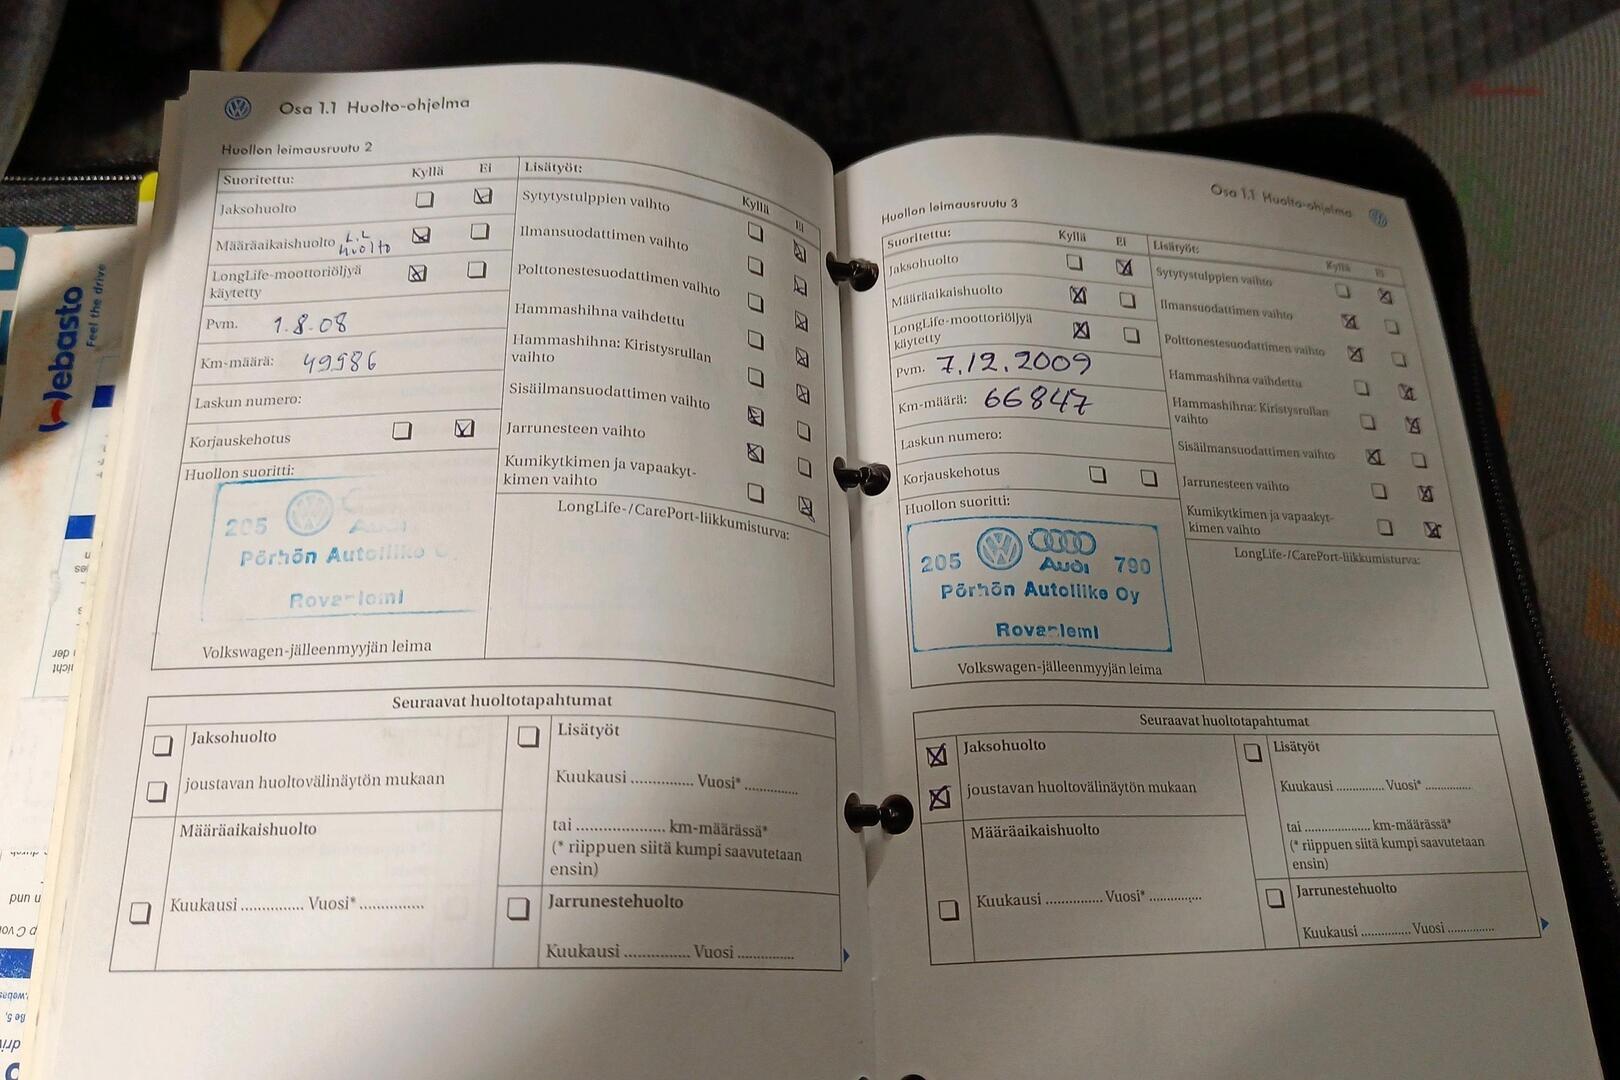 Osa 1.1 Huolto-ohjelma
Huollon leimausruutu 2
Suoritettu: Kyllä Ei
Jaksohuolto
Määräaikaishuolto L.L huolto
LongLife-moottoriöljyä
käytetty
Pvm. 1.8.08
Km-määrä: 49986
Laskun numero:
Korjauskehotus
Huollon suoritti:
205 Audi
Pörhön Autoliike
Rovaniemi
Volkswagen-jälleenmyyjän leima
Lisätyöt: Kyllä Ei
Sytytystulppien vaihto
Ilmansuodattimen vaihto
Polttonestesuodattimen vaihto
Hammashihna vaihdettu
Hammashihna: Kiristysrullan
vaihto
Sisäilmansuodattimen vaihto
Jarrunesteen vaihto
Kumikytkimen ja vapaakyt-
kimen vaihto
LongLife-/CarePort-liikkumisturva:
Seuraavat huoltotapahtumat
Jaksohuolto
joustavan huoltovälinäytön mukaan
Määräaikaishuolto
Kuukausi .............. Vuosi* ..............
Lisätyöt
Kuukausi .............. Vuosi* ............
tai .................... km-määrässä*
(* riippuen siitä kumpi saavutetaan
ensin)
Jarrunestehuolto
Kuukausi .............. Vuosi ............
Osa 1.1 Huolto-ohjelma
Huollon leimausruutu 3
Suoritettu: Kyllä Ei
Jaksohuolto
Määräaikaishuolto
LongLife-moottoriöljyä
käytetty
Pvm. 7.12.2009
Km-määrä: 66847
Laskun numero:
Korjauskehotus
Huollon suoritti:
205 Audi 790
Pörhön Autoliike Oy
Rovaniemi
Volkswagen-jälleenmyyjän leima
Lisätyöt: Kyllä Ei
Sytytystulppien vaihto
Ilmansuodattimen vaihto
Polttonestesuodattimen vaihto
Hammashihna vaihdettu
Hammashihna: Kiristysrullan
vaihto
Sisäilmansuodattimen vaihto
Jarrunesteen vaihto
Kumikytkimen ja vapaakyt-
kimen vaihto
LongLife-/CarePort-liikkumisturva:
Seuraavat huoltotapahtumat
Jaksohuolto
joustavan huoltovälinäytön mukaan
Määräaikaishuolto
Kuukausi .............. Vuosi* ..............
Lisätyöt
Kuukausi .............. Vuosi* ............
tai .................... km-määrässä*
(* riippuen siitä kumpi saavutetaan
ensin)
Jarrunestehuolto
Kuukausi .............. Vuosi ............
Webasto
Feel the drive